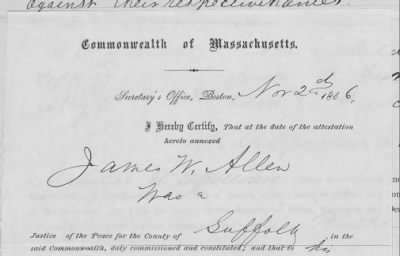 against their respective names.
Commonwealth of Massachusetts.
Secretary's Office, Boston, Nov 2d 1866,
I Hereby Certify, That at the date of the attestation
hereto annexed
James W. Allen
Was a
Justice of the Peace for the County of Suffolk in the
said Commonwealth, duly commissioned and constituted; and that to his